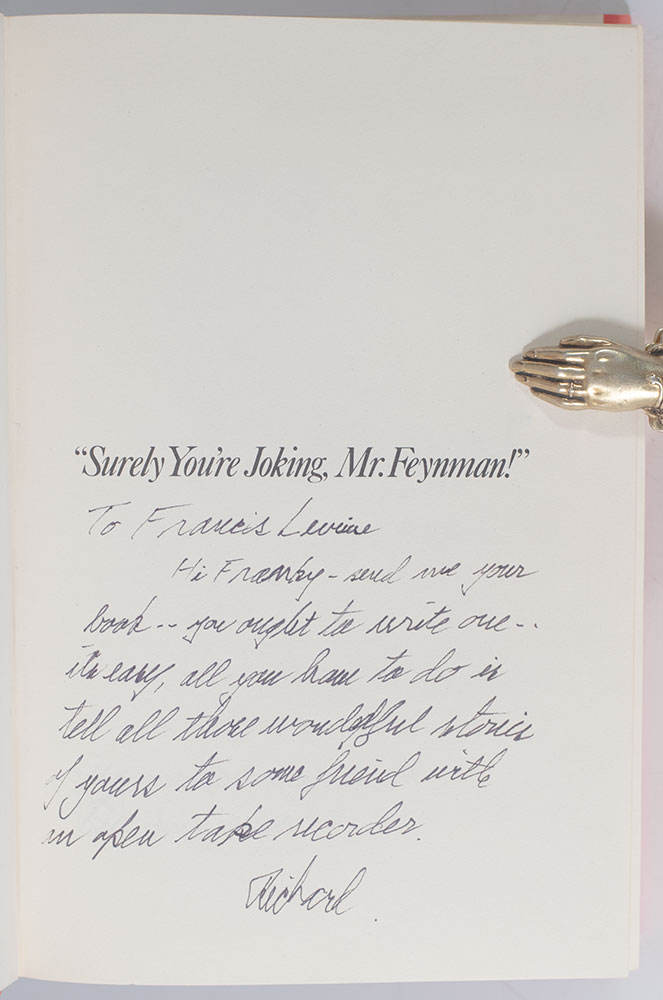 “Surely You're Joking, Mr. Feynman!”
To Francis Levine
Hi Franky - send me your
book -- you ought to write one --
its easy, all you have to do is
tell all those wonderful stories
of yours to some friend with
an open tape recorder.
Richard.